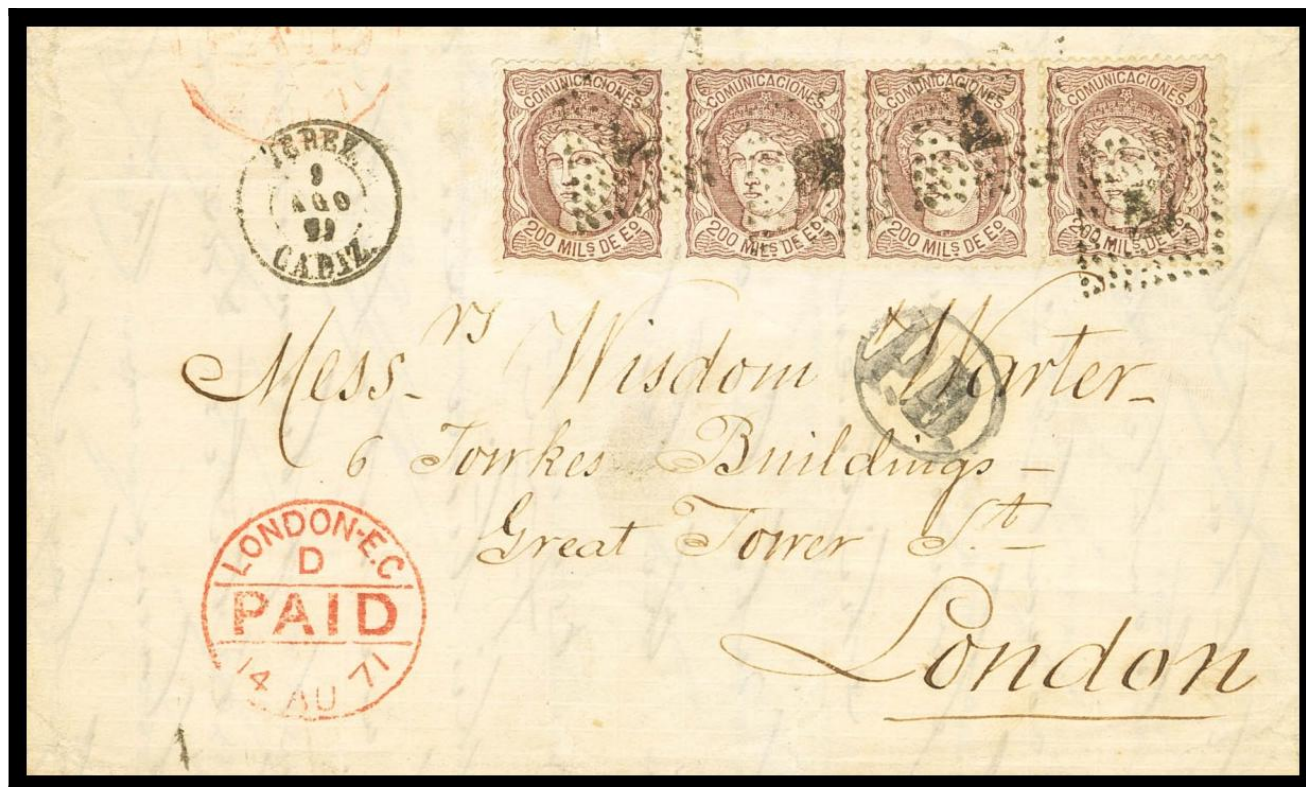 PAID
71
JEREZ
9
AGO
71
CADIZ
COMUNICACIONES
200 MILS DE Eo
COMUNICACIONES
200 MILS DE Eo
COMUNICACIONES
200 MILS DE Eo
COMUNICACIONES
200 MILS DE Eo
Messrs Wisdom & Warter
6 Fowkes Buildings
Great Tower St
London
LONDON-E.C
D
PAID
14 AU 71